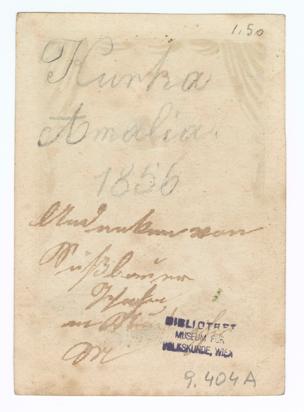 1.50
Kurka
Amalia.
1856
Andenken von
Süßbauer
in
M
BIBLIOTHEK
MUSEUM FÜR
VOLKSKUNDE, WIEN
9.404A